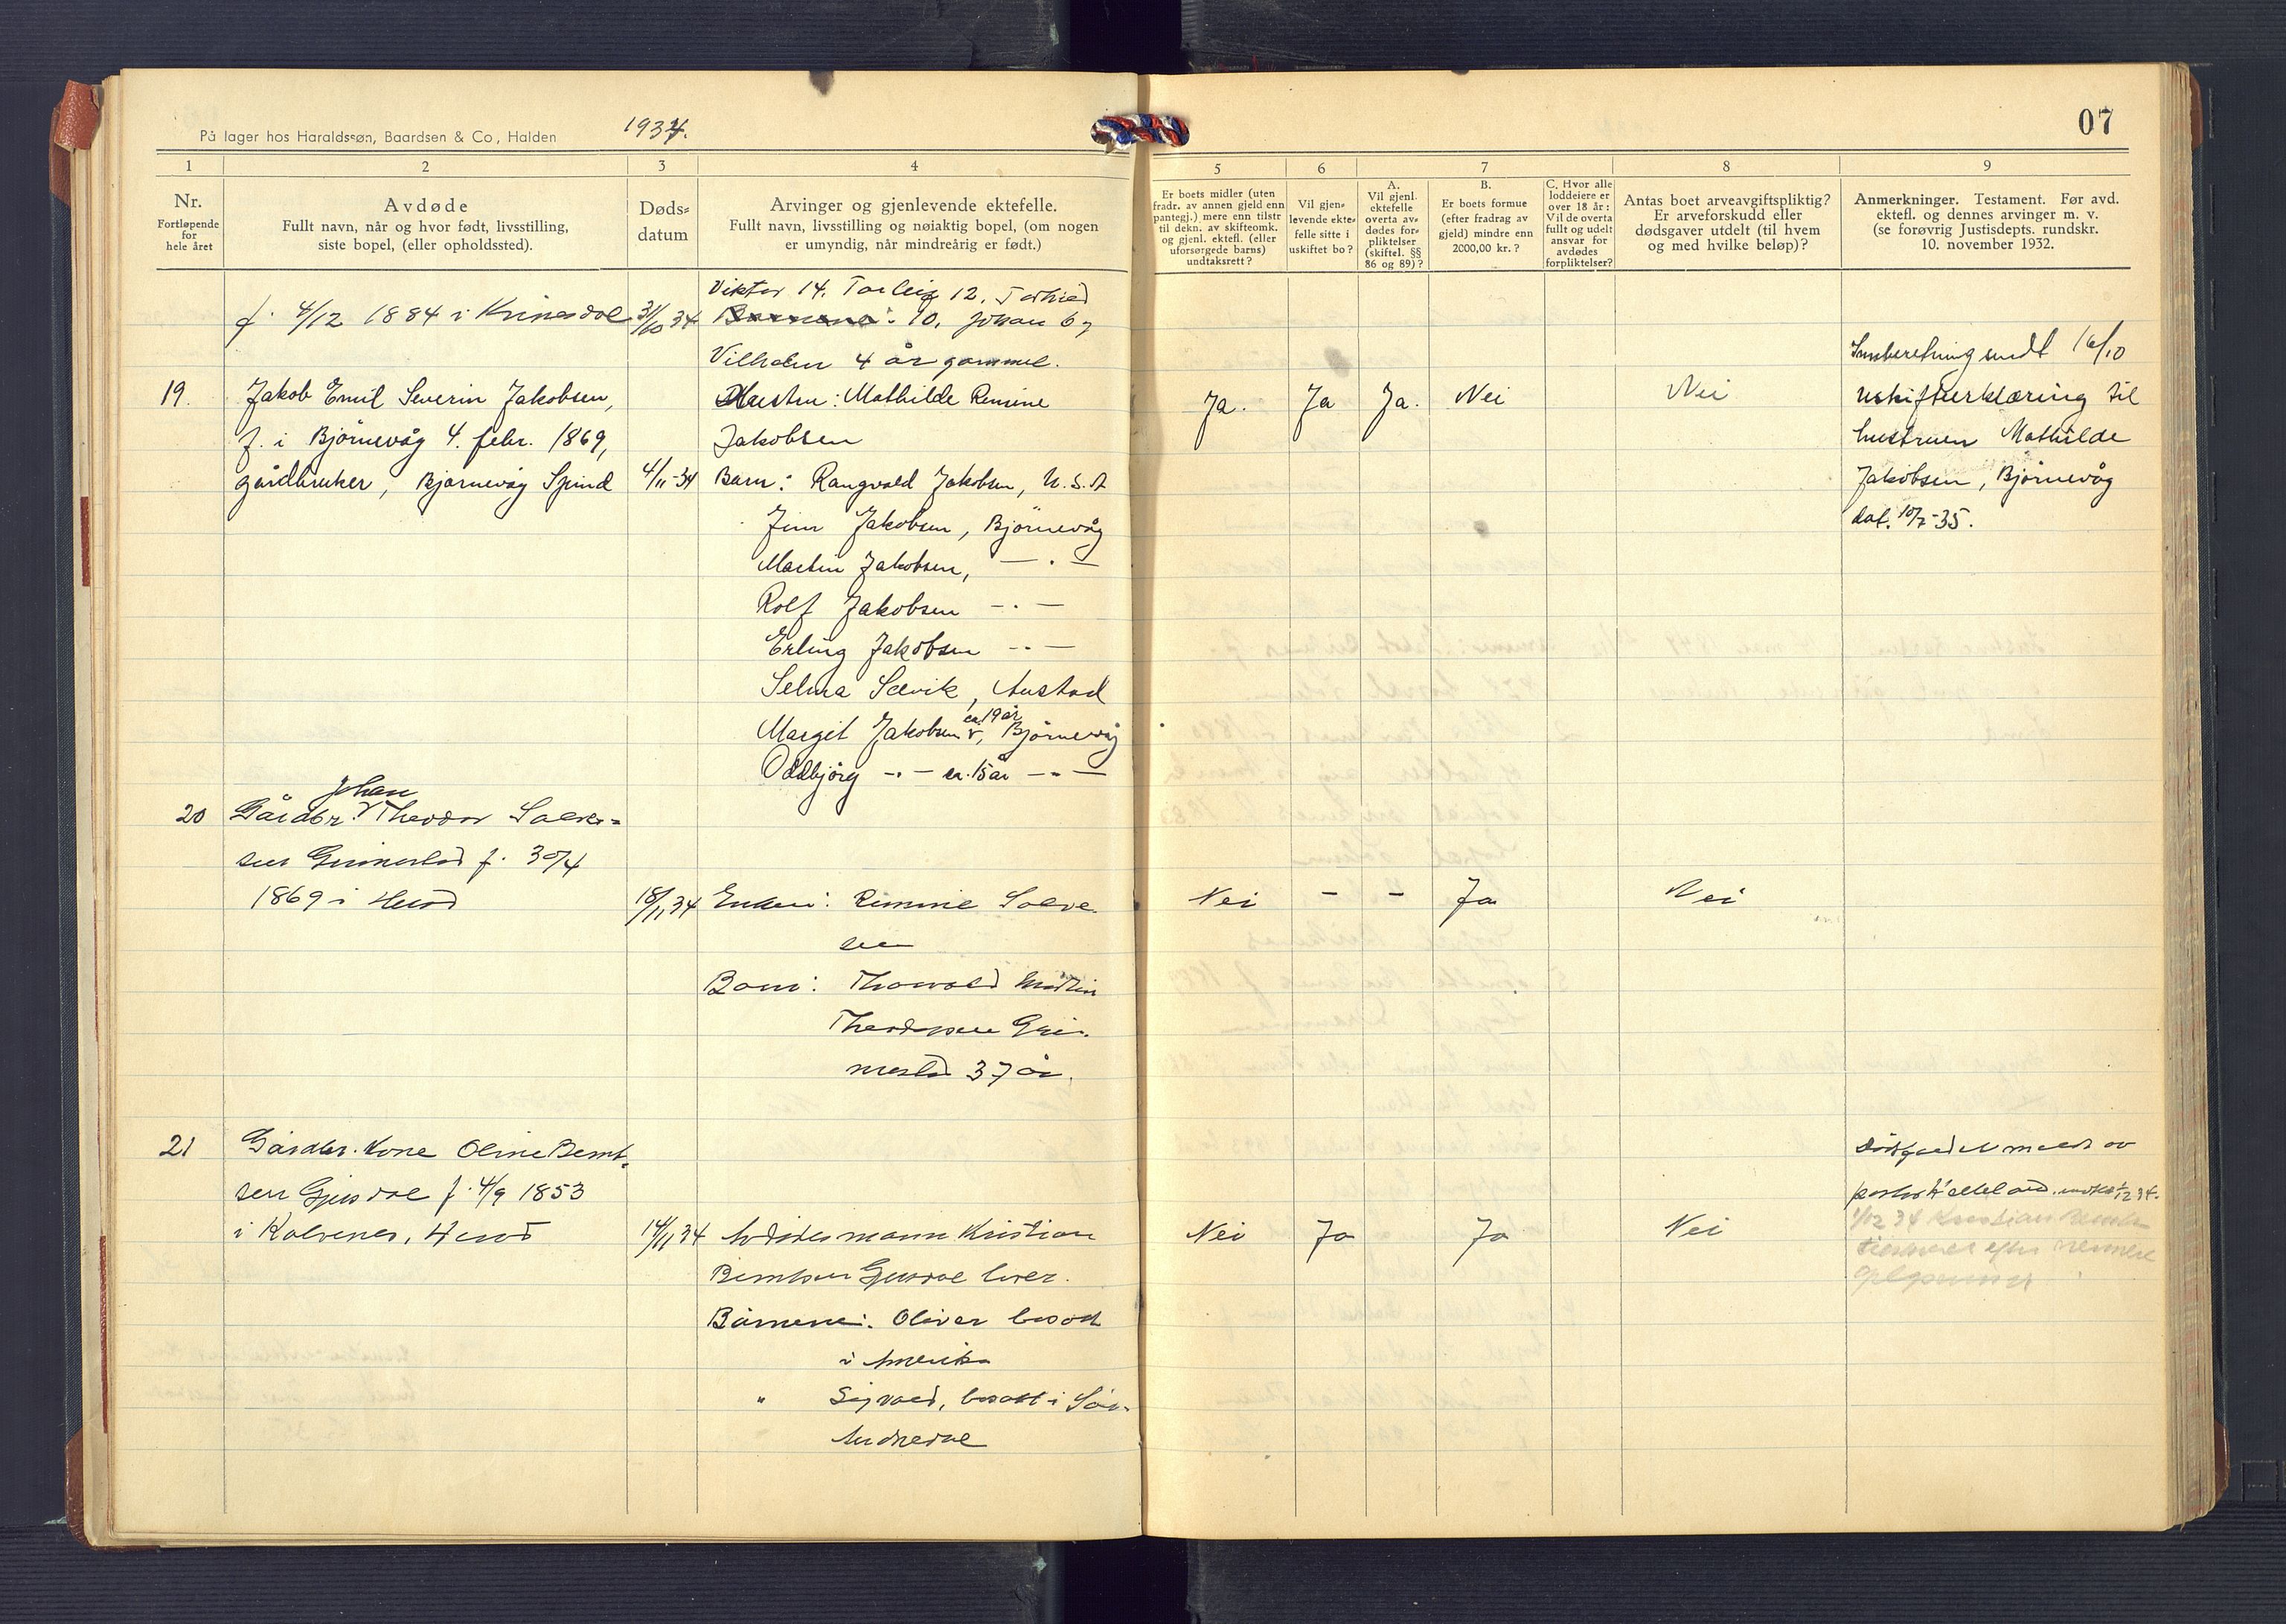 På lager hos Haraldssøn, Baardsen & Co, Halden
1934.
07
1
2
3
4
5
6
7
8
9
Nr.
Fortløpende
for
hele året
Avdøde
Fullt navn, når og hvor født, livsstilling,
siste bopel, (eller opholdssted).
Døds-
datum
Arvinger og gjenlevende ektefelle.
Fullt navn, livsstilling og nøiaktig bopel, (om nogen
er umyndig, når mindreårig er født.)
Er boets midler (uten
fradr. av annen gjeld enn
pantegj.) mere enn tilstr
til dekn. av skifteomk.
og gjenl. ektefl. (eller
uforsørgede barns)
undtaksrett?
Vil gjen-
levende ekte-
felle sitte i
uskiftet bo?
A.
Vil gjenl.
ektefelle
overta av-
dødes for-
pliktelser
(skiftel. §§
86 og 89)?
B.
Er boets formue
(efter fradrag av
gjeld) mindre enn
2000,00 kr.?
C. Hvor alle
loddeiere er
over 18 år:
Vil de overta
fullt og udelt
ansvar for
avdødes
forpliktelser?
Antas boet arveavgiftspliktig?
Er arveforskudd eller
dødsgaver utdelt (til hvem
og med hvilke beløp)?
Anmerkninger. Testament. Før avd.
ektefl. og dennes arvinger m. v.
(se forøvrig Justisdepts. rundskr.
10. november 1932.
Viktor 14. Torleif 12.
f. 4/12 1884 i Kvinesdal 31/10 34 10, Johan 6 og
Vilhelm 4 år gammel.
Innberetning sendt 16/10
19. Jakob Emil Severin Jakobsen, Hustru: Mathilde Remine Ja. Ja Ja. Nei Nei uskifteerklæring til
f. i Bjørnevåg 4. febr. 1869, Jakobsen hustruen Mathilde
gårdbruker, Bjørnevåg Spind 4/11-34 Barn: Rangvald Jakobsen, U.S.A Jakobsen, Bjørnevåg
Finn Jakobsen, Bjørnevåg dat. 10/7-35.
Martin Jakobsen, — . —
Rolf Jakobsen -.-
Erling Jakobsen -.-
Selma Sævik, Austad
ca 19 år
Margit Jakobsen, Bjørnevåg
Oddbjørg -.- ca. 15 år -.-
Johan
20 Gårdbr. Theodor Salve-
sen Grimestad f. 30/4
1869 i Herad 18/11 34 Enken: Remine Salve- Nei - - Ja Nei
sen
Barn: Thorvald Martin
Theodorsen Gri-
mestad 37 år.
21 Gårdbr. kone Oline Bernt-
sen Gjersdal f. 4/9 1853
i Kalvenes, Herad 14/11 34 Avdødes mann Kristian Nei Ja Ja Nei
Berntsen Gjersdal lever.
Barnene: Oliver bosatt
i Amerika
" Sigvald, bosatt i Sør-
Audnedal
Dødsfallet meldt av
1/12 34 Kristian Berntsen